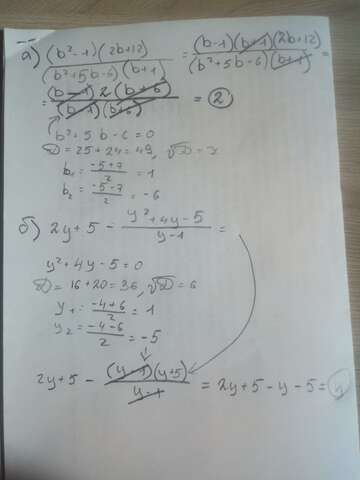 а) (b²-1)(2b+12) / (b²+5b-6)(b+1) = (b-1)(b+1)(2b+12) / (b²+5b-6)(b+1) =
= (b-1)2(b+6) / (b-1)(b+6) = 2
b²+5b-6=0
D=25+24=49, √D=7
b₁=(-5+7)/2=1
b₂=(-5-7)/2=-6
б) 2y+5 - (y²+4y-5)/(y-1) =
y²+4y-5=0
D=16+20=36, √D=6
y₁=(-4+6)/2=1
y₂=(-4-6)/2=-5
2y+5 - (y-1)(y+5)/(y-1) = 2y+5-y-5=